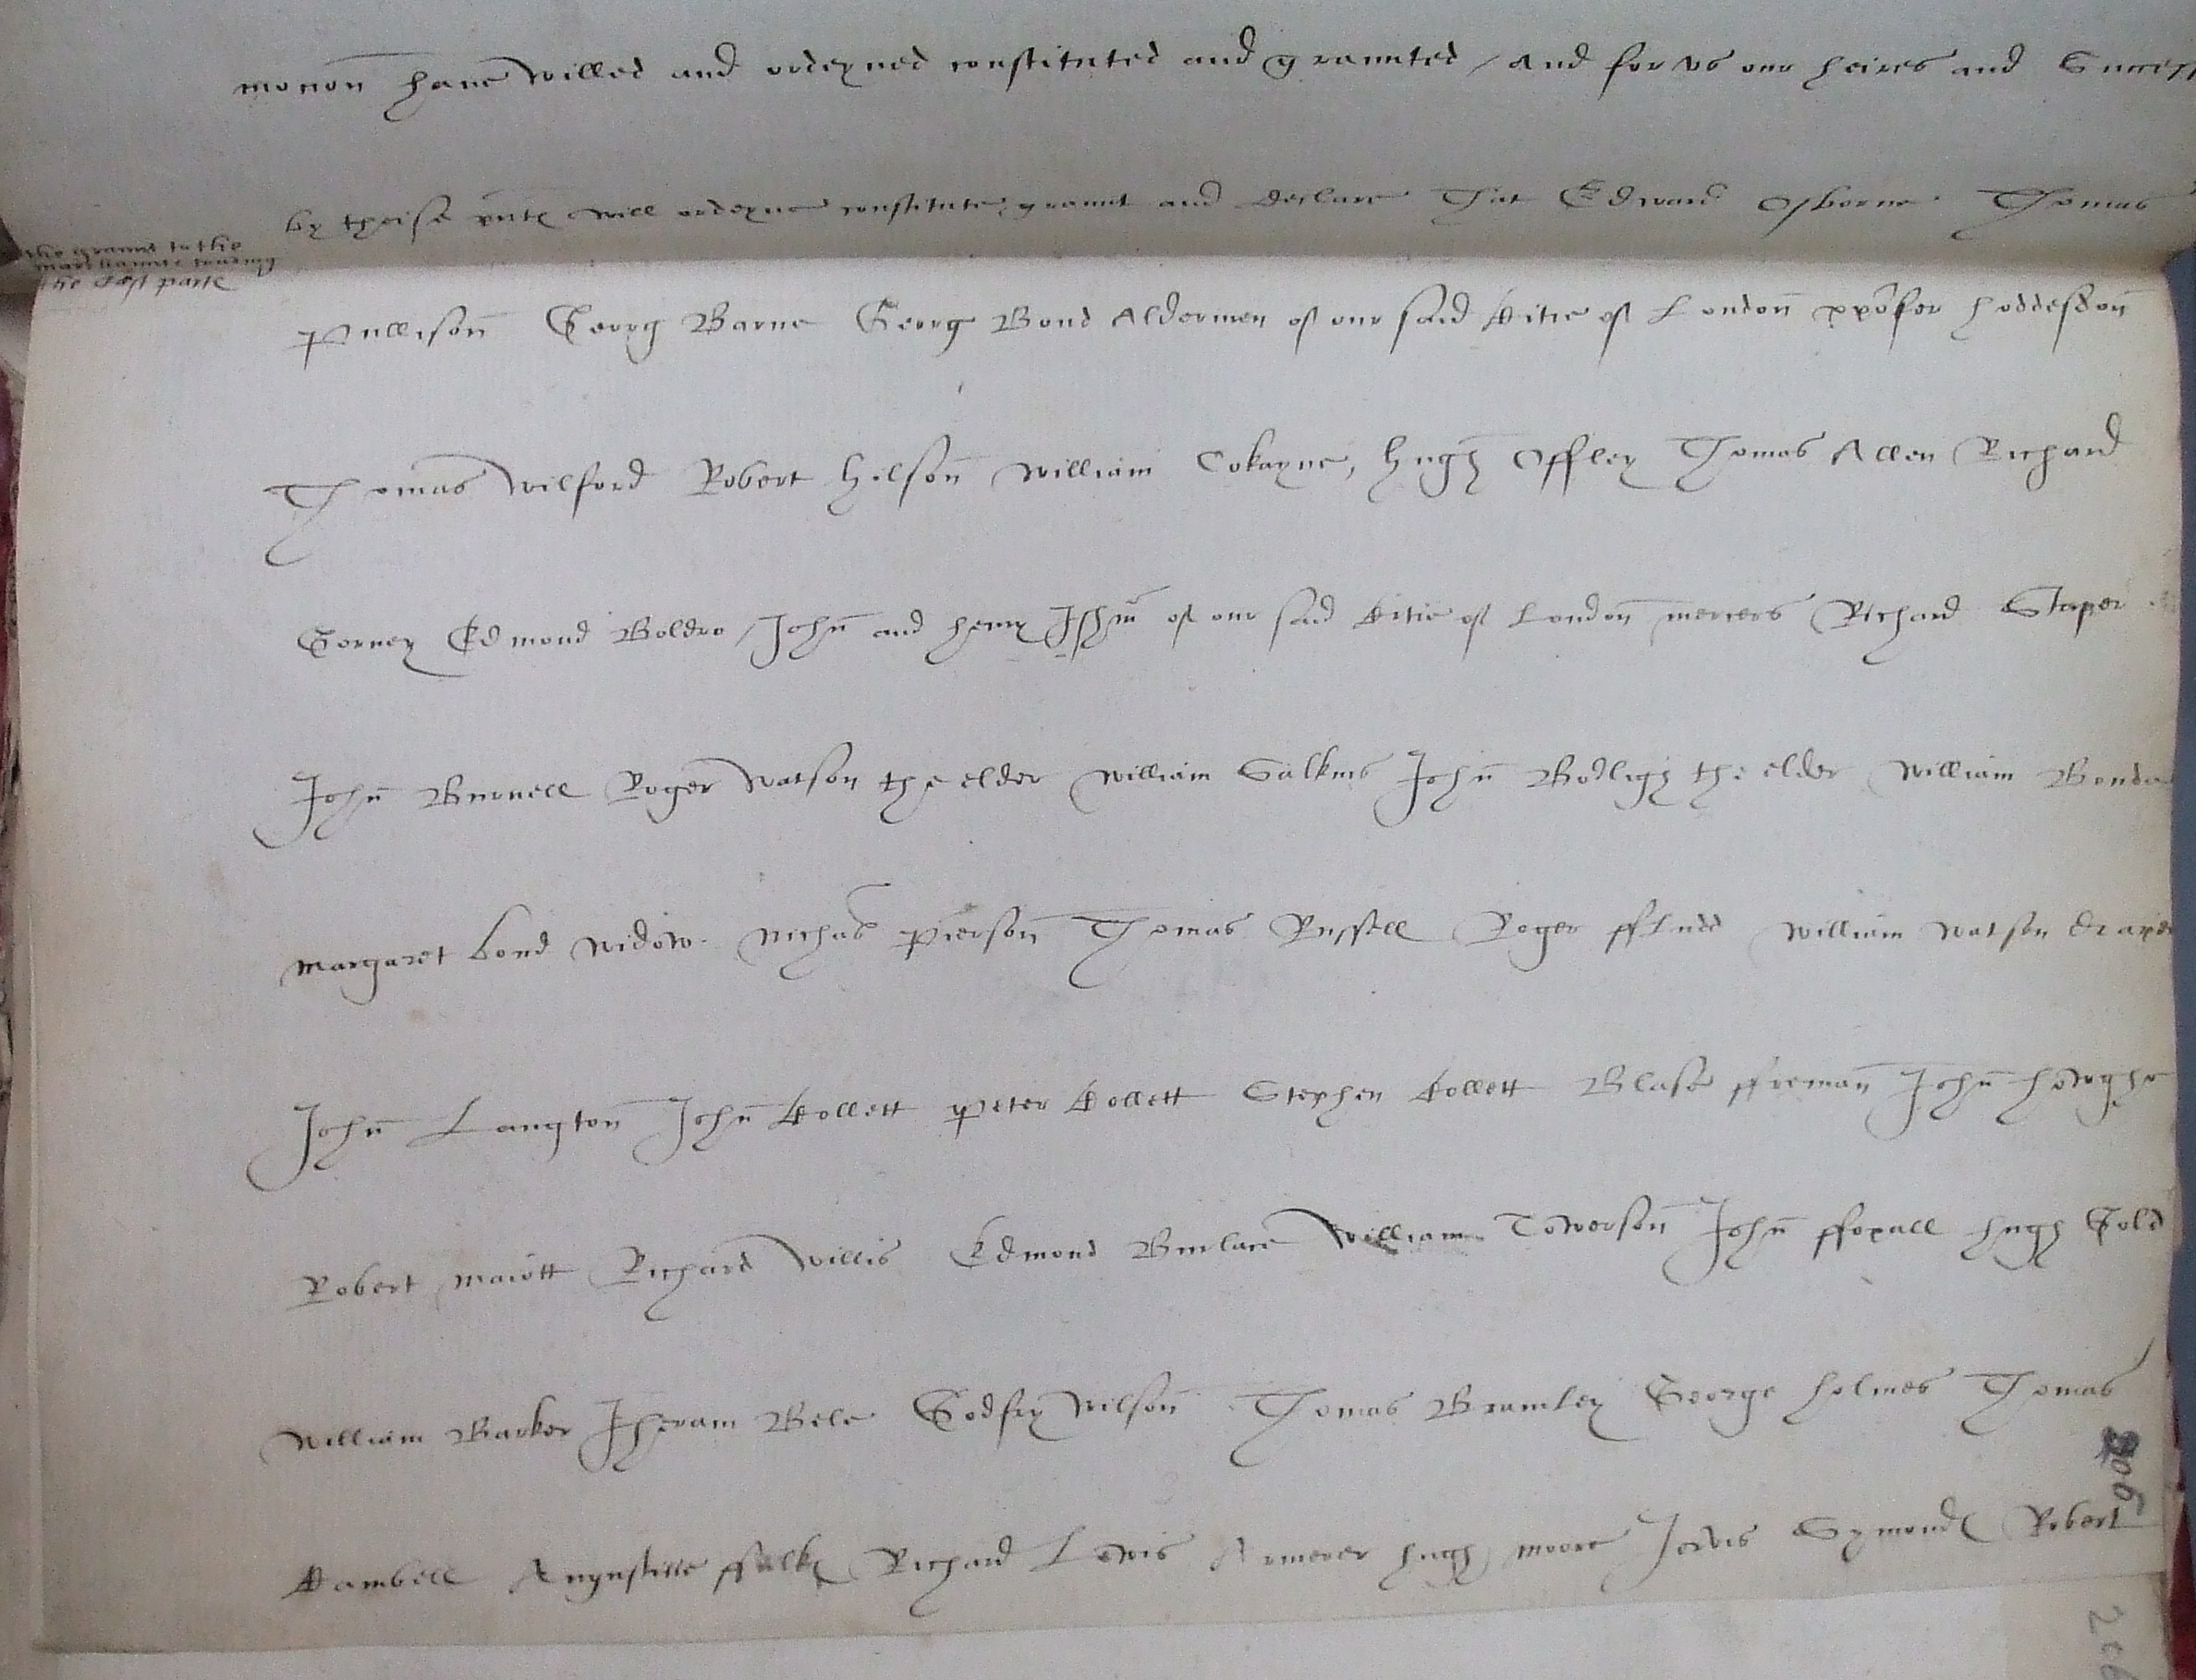 monon haue willed and ordeyned constituted and graunted / And for us our heires and Success
by theise pñtes will ordeyne constitute graunt and declare That Edward Osborne Thomas
the graunt to the
marchaunts trading
the East parte
Pullison Georg Barne Georg Bond Aldermen of our said Citie of London xpofer Hoddesdon
Thomas Wilford Robert Hilson William Cokayne, Hugh Offley Thomas Allen Richard
Gorney Edmond Boldro John and henry Ishm of our said Citie of London mercers Richard Staper
John Burnell Roger Watson the elder William Salkins John Bodligh the elder William Bonda
Margaret bond widow Nichas Pierson Thomas Russell Roger ffludd William Watson drap
John Langton John Collett Peter Collett Stephen Collett Blase ffreman John Howghe
Robert Maiott Richard Willis Edmond Burlace William Towerson John ffoxall Hugh Gold
William Barker Jheram Bele Godfry Wilson Thomas Bramley George Holmes Thomas
Cambell Augustine ffulks Richard Lewis Armerer Hugh Moore Jervis Symonds Robert
206